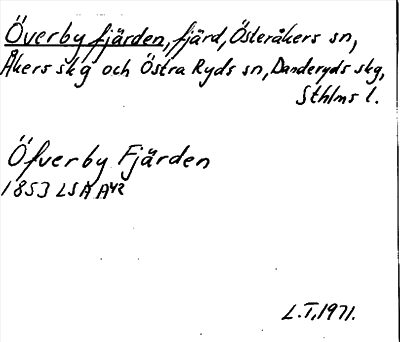 Överby fjärden, fjärd, Österåkers sn,
Åkers skg och Östra Ryds sn, Danderyds skg,
Sthlms l.
Öfverby Fjärden
1853 LSA A42
L.T. 1971.